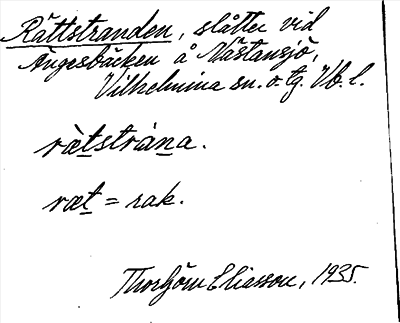 Rättstranden, slåtter vid
Ängesbäcken å Nästansjö,
Vilhelmina sn. o. tg. Vb. l.
rètstrána.
ræt = rak.
Thorbjörn Eliasson, 1935.